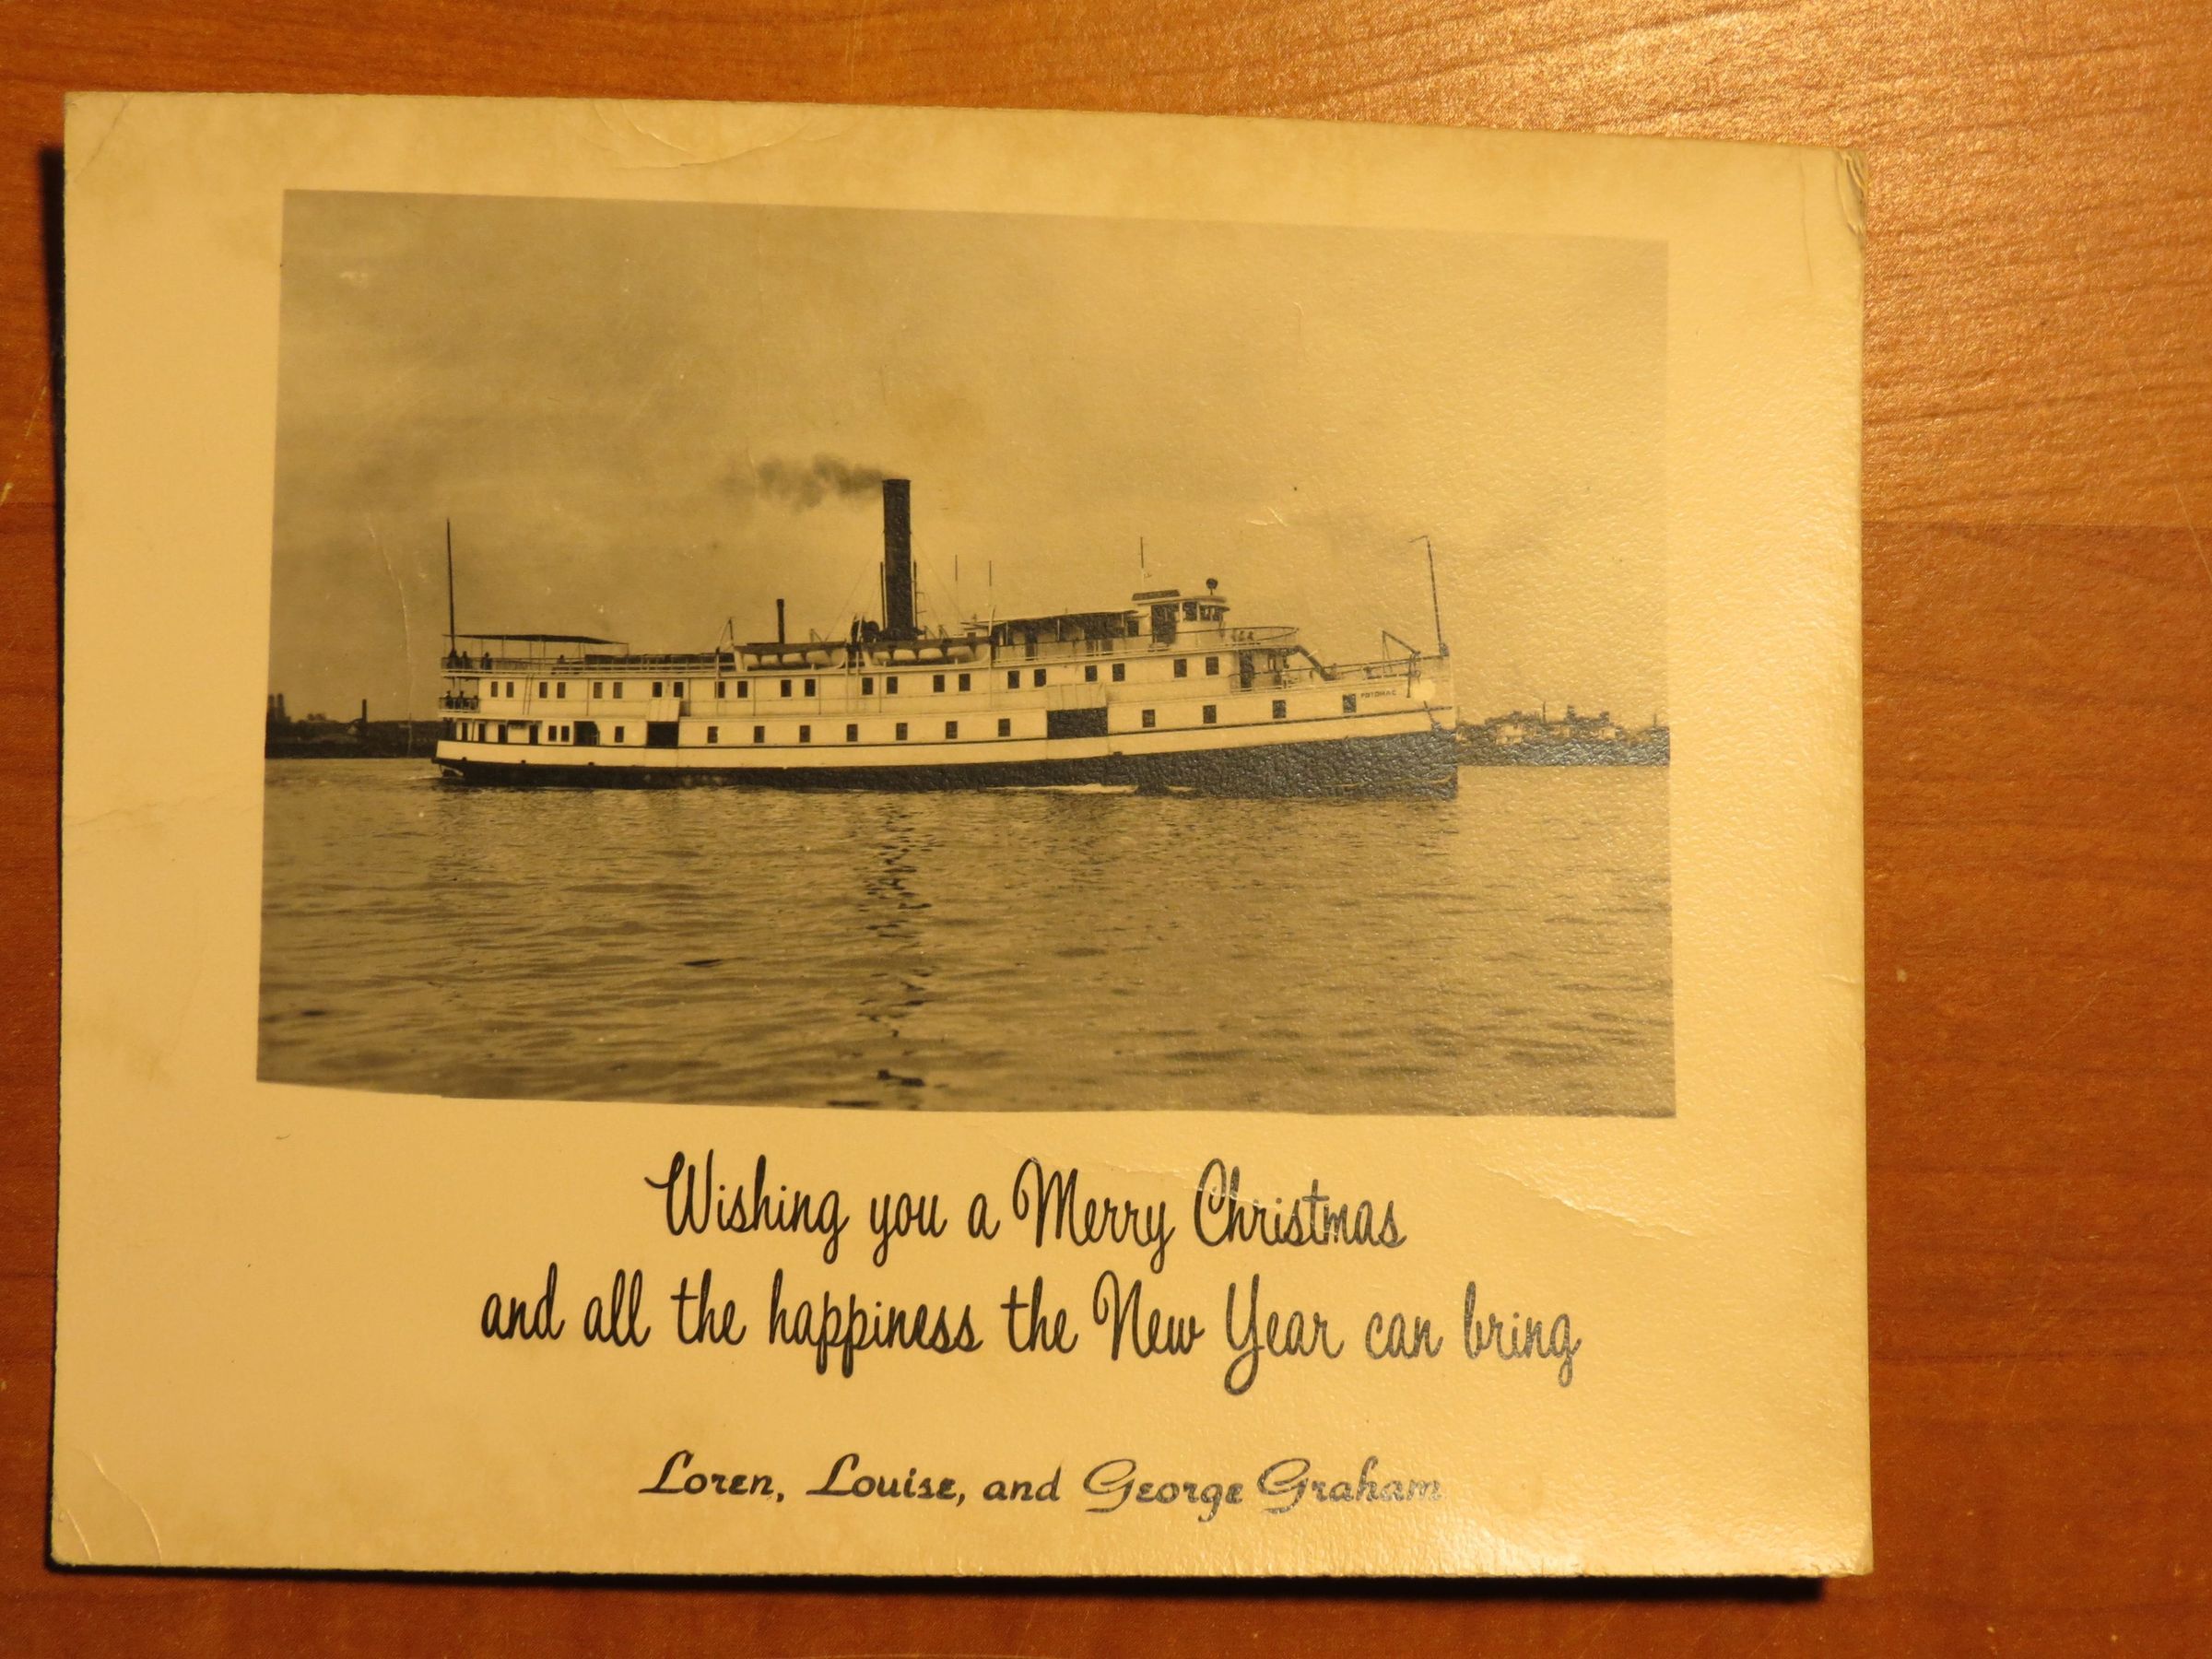 POTOMAC
Wishing you a Merry Christmas
and all the happiness the New Year can bring
Loren, Louise, and George Graham